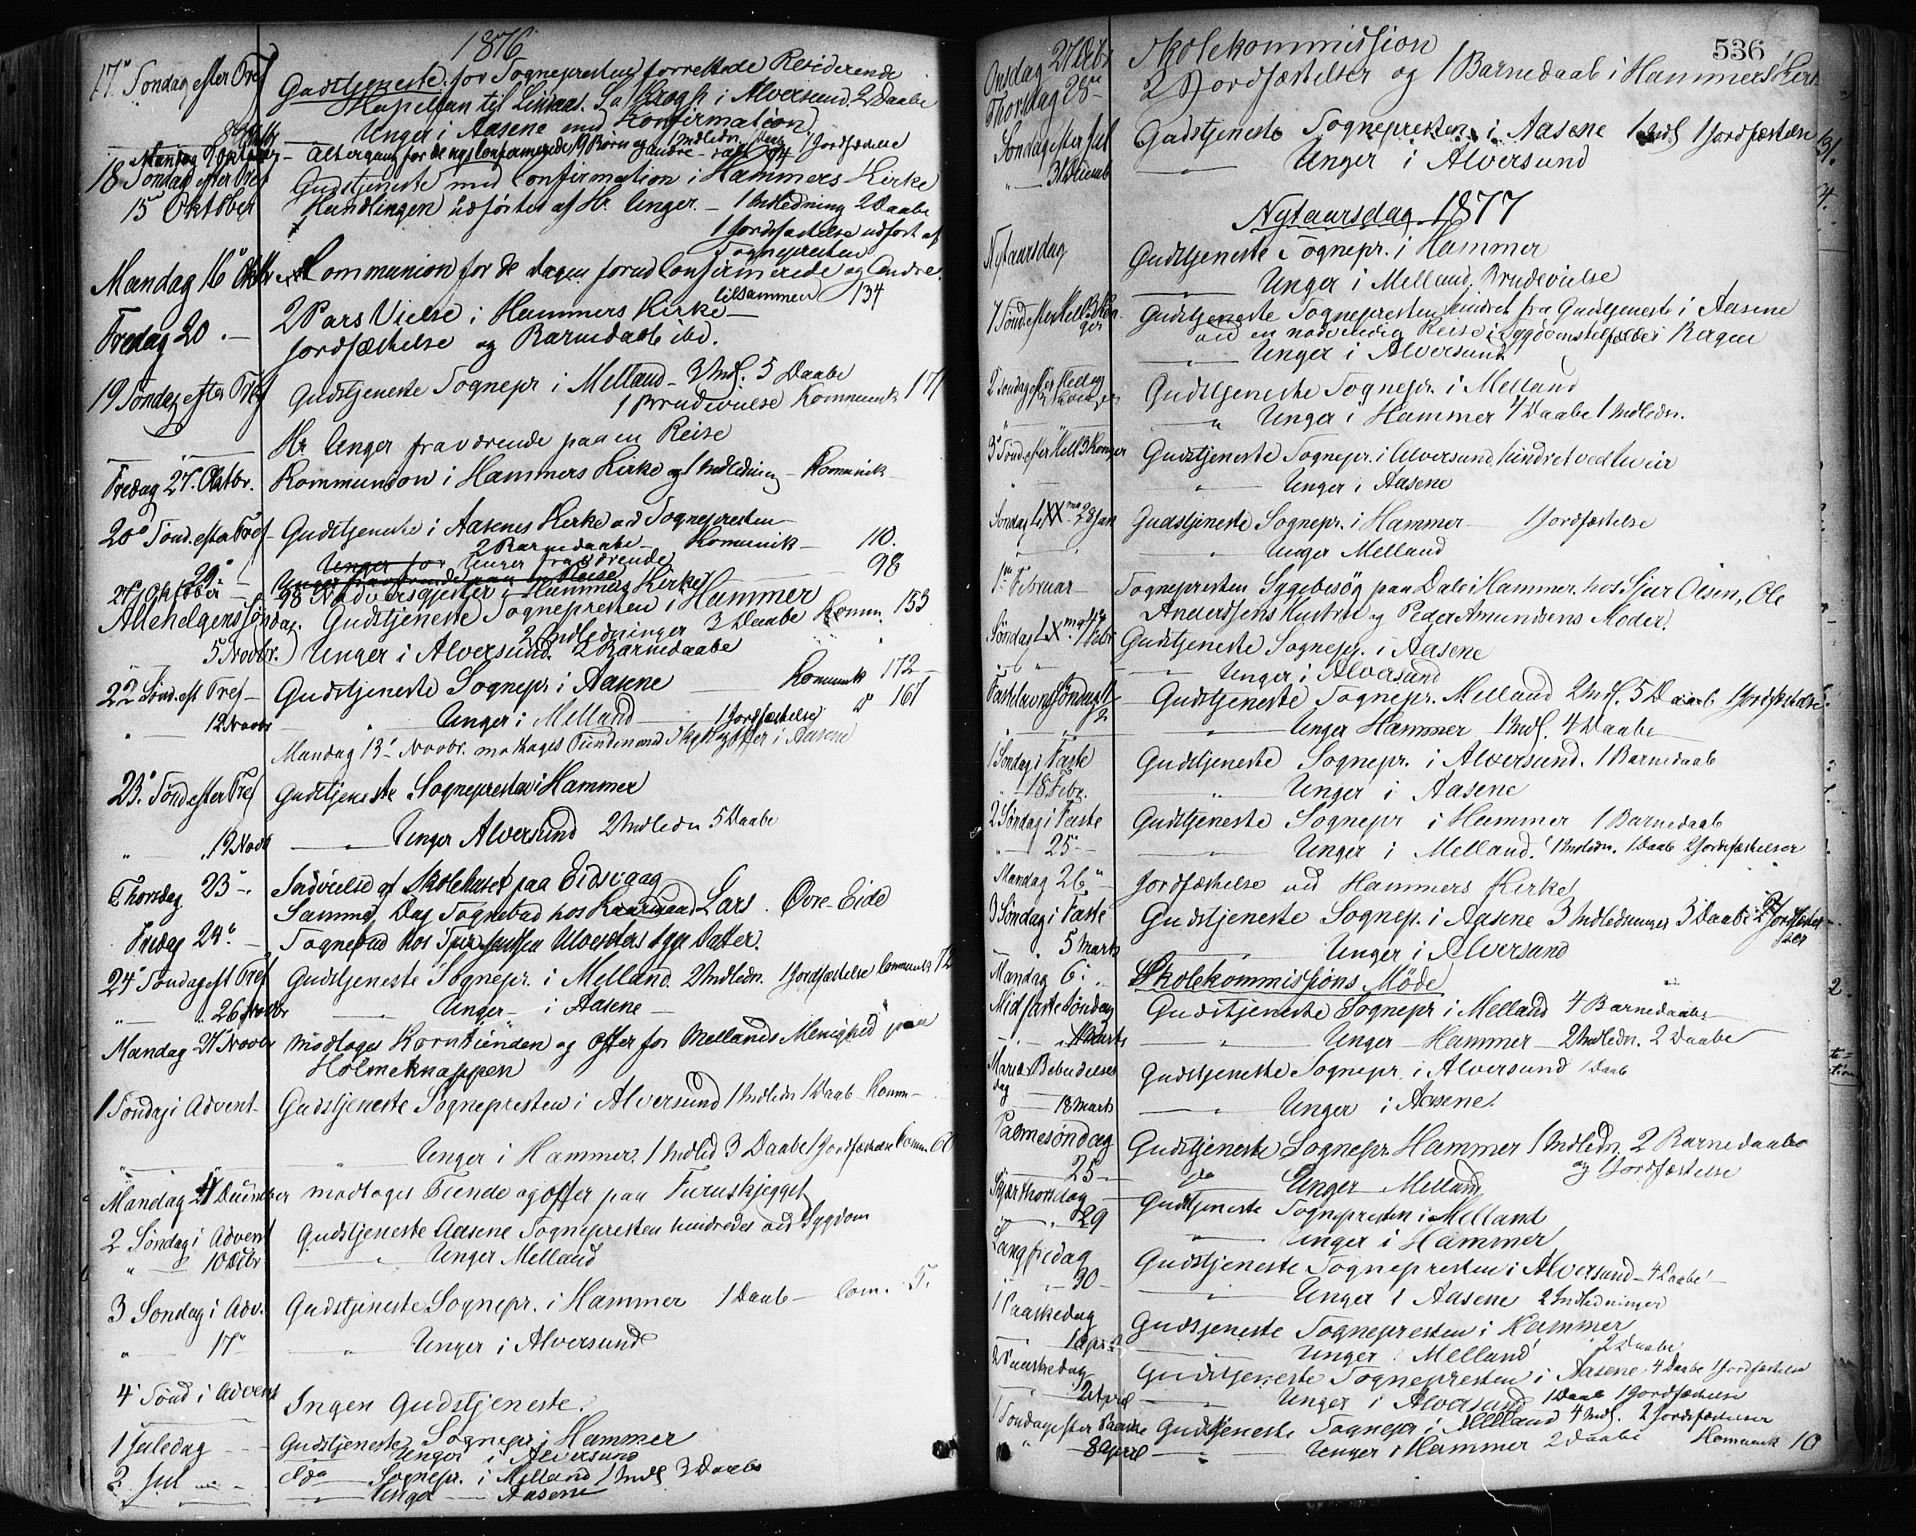 1876
17de Søndag efter Tref Gudstjeneste for Sognepresten forrettede Residerende
Kapellan til Lindaas Sa Krogh i Alversund. 2 Daabe
8 Oktb Unger i Aasene med Konfirmation
Mandag 9 Oktober – Altergang for de nysconfirmerede 19 Børn og andre 1 Indledn. 1 Jordfæstelse
18 Søndag efter Tref Gudstjeneste med Confirmation i Hammers Kirke
15 Oktober Handlingen udførtes af Hr. Unger. – 1 Indledning 2 Daabe
1 Jordfæstelse udført af
Sognepresten
Mandag 16 Oktbr Communion for de dagen forud Confirmerede og Andre
tilsammen 134
Fredag 20. – 2 Pars Vielse i Hammers Kirke –
Jordfæstelse og Barnedaab ibd.
19 Søndag efter Tref Gudstjeneste Sognepr i Melland – 3 Indl. 5 Daabe
1 Brudevielse Kommunik 171
Hr Unger fraværende paa en Reise
Fredag 27. Oktbr. Kommunion i Hammers Kirke og 1 Indledning – Komunik –
20de Sønd. efter Tref – Gudstjeneste i Aasenes Kirke ved Sognepresten –
2 Barnedaabe – Komunik – 110.
29de – Unger for Unger fraværende
Unger fraværende paa en Reise 98
27 Oktober – 98 Nadversgjester i Hammers Kirke
Allehelgens Søndag. Gudstjeneste Sognepresten i Hammer
2 Indledninger 3 Daabe Komm. 153
5 Novbr. Unger i Alversund. 2 Barnedaabe
22 Sønd. eft Tref – Gudstjeneste Sognepr. i Aasene Komunik 172 –
12 Novbr Unger i Melland 1 Jordfæstelse do 161
Mandag 13de Novbr. modtages Tienden and Skyds offer i Aasene
23de Sønd efter Tref Gudstjeneste Sognepresten i Hammer
19 Novb Unger Alversund 2 Indledn 5 Daabe
Thorsdag 23de – Indvielse af Skolehuset paa Eidsvaag
Samme Dag Sognebud hos Kaarmand Lars Øvre-Eide
Fredag 24de – Sognebud hos
24de Søndag eft Tref Gudstjeneste Sognepr. i Melland. 2 Indledn. 1 Jordfæstelse Communik 72
26 Novbr Unger – i Aasene –
Mandag 27 Novbr modtages Korntienden og Offer for Mellands Menighed paa
Holmeknappen
1 Søndag i Advent – Gudstjeneste Sognepresten i Alversund 1 Indledn 1 Daab Komm –
Unger i Hammer. 1 Indled 3 Daabe 1 Jordfæstelse Comm 60
Mandag 4 December modtages Tiende og Offer paa Furuskjegget
2 Søndag i Advent Gudstjeneste Aasene Sognepresten hindredes ved Sygdom
10 Decbr. Unger Melland
3 Søndag i Adv. Gudstjeneste Sognepr. i Hammer 1 Daab – Com. 5.
17de Unger i Alversund
4de Sønd i Advent Ingen Gudstjeneste.
1 Juledag – – Gudstjeneste Sognepr. i Hammer
Unger i Alversund
2 Jul – do Sognepr. i Melland 1 Indl 3 Daabe
Unger – Aasene
536
Onsdag 27 Decbr Skolekommission
Thorsdag 28de – 2 Jordfæstelser og 1 Barnedaab i Hammers Kirke
Søndag efter Jul Gudstjeneste Sognepresten i Aasene 1 Indl 1 Jordfæstelse
31 Decemb Unger i Alversund
Nytaarsdag 1877
Nytaarsdag Gudstjeneste Sognepr. i Hammer
Unger i Melland, Brudevielse
1 Sønd efter Hell 3 Konger Gudstjeneste Sognepresten hindret fra Gudtjeneste i Aasene
ved en nødvendig Reise i Sygdomstilfælde i Bergen
Unger i Alversund
2 Søndag efter Hellig 3 Konger Gudstjeneste Sognepr. i Melland
Unger i Hammer 4 Daabe 1 Indledn.
3de Sønd efter Hell 3 Konger Gudstjeneste Sognepr. i Alversund, hindret ved Uveir
Unger i Aasene
Søndag LXXma 28 Jan Gudstjeneste Sognepr. i Hammer – 1 Jordfæstelse
Unger Melland
1ste Februar – Sognepresten Sygebesøg paa Dale i Hammer hos Sjur Olsen, Ole
Anderssens Hustru og Peder Amundsens Moder.
Søndag LXma 4 Febr Gudstjeneste Sognepr. i Aasene
Unger i Alversund
Fastelavns Søndag 11/2 Gudstjeneste Sognepr. Melland 2 Indl. 5 Daab 1 Jordfæstelse
Unger Hammer 1 Indl. 4 Daabe
1 Søndag i Faste Gudstjeneste Sognepr. i Alversund. 1 Barnedaab
18 Febr. Unger i Aasene
2 Søndag i Faste Gudstjeneste Sognepr i Hammer 1 Barnedaab
25de – Unger i Melland. 1 Indledn. 1 Daab 2 Jordfæstelser
Mandag 26de Jordfæstelse ved Hammers Kirke
3 Søndag i Faste Gudstjeneste Sognepr. i Aasene 3 Indledninger 3 Daabe og 2 Jordfæstelser
5 Marts Unger i Alversund
Mandag 6. Skolekommissions Møde
Midfaste Søndag Gudstjeneste Sognepr i Melland 4 Barnedaabe
11 Marts Unger – Hammer – 2 Indledn. 2 Daabe
Mariæ Bebudelses dag Gudstjeneste Sognepr. i Alversund 1 Daab
18 Marts Unger i Aasene.
Palmesøndag Gudstjeneste Sognepr Hammer 1 Indledn. 2 Barnedaab
og 1 Jordfæstelse
25 – do Unger Melland
Skjærthorsdag Gudstjeneste Sognepresten i Melland
29 Unger i Hammer
Langfredag Gudstjeneste Sognepresten i Alversund – 4 Daabe
30 – Unger i Aasene 2 Indledninger
1 Paaskedag Gudstjeneste Sognepresten i Hammer
1 April Unger i Melland 2 Daabe
2 Paaskedag Gudstjeneste Sognepresten i Aasene 4 Daabe 1 Jordfæstelse
2 April Unger i Alversund 1 Daab 1 Jordfæstelse
1 Søndag efter Paaske Gudstjeneste Sognepr i Melland 4 Indl. 2 Jordfæstelser
8 April Unger i Hammer 2 Daabe Komunik 10